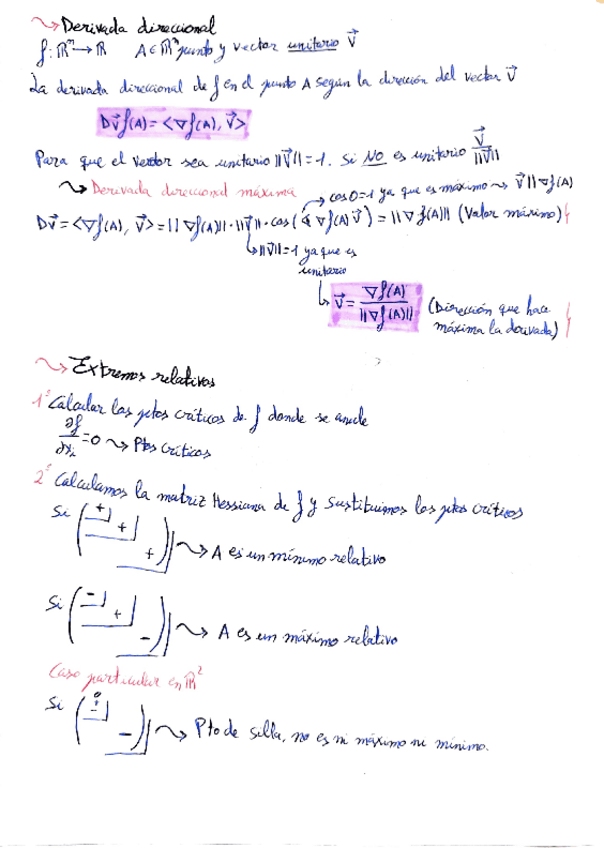 Derivada direccional
f: ℝⁿ → ℝ A ∈ ℝⁿ punto y vector unitario V⃗
La derivada direccional de f en el punto A según la dirección del vector V⃗
DV⃗f(A) = <∇f(A), V⃗>
Para que el vector sea unitario ||V⃗|| = 1. Si NO es unitario V⃗/||V⃗||
Derivada direccional máxima
cos 0 = 1 ya que es máximo ⇝ V⃗ || ∇f(A)
DV⃗ = <∇f(A), V⃗> = ||∇f(A)|| · ||V⃗|| · cos(∢ ∇f(A) V⃗) = ||∇f(A)|| (Valor máximo)
↳ ||V⃗|| = 1 ya que es
unitario
↳ V⃗ = ∇f(A)/||∇f(A)|| (Dirección que hace
máxima la derivada)
Extremos relativos
1º Calcular los ptos críticos de f donde se anule
∂f/∂xᵢ = 0 ⇝ Ptos críticos
2º Calculamos la matriz Hessiana de f y sustituimos los ptos críticos
Si (+ + +) ⇝ A es un mínimo relativo
Si (- + -) ⇝ A es un máximo relativo
Caso particular en ℝ²
Si ( - ) ⇝ Pto de silla, no es ni máximo ni mínimo.